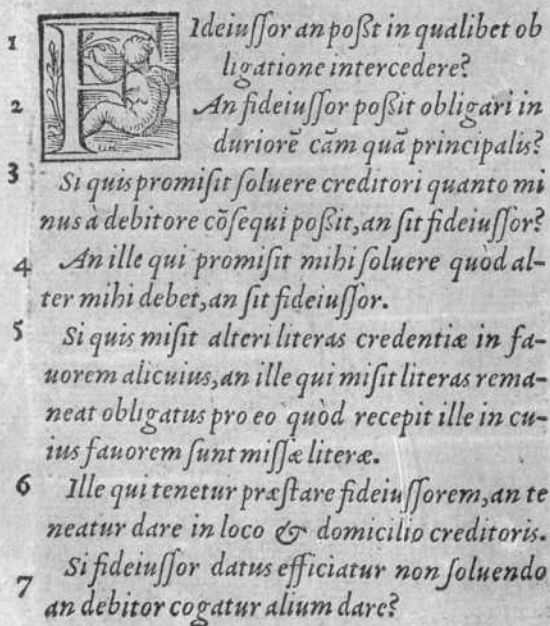 1 FIdeiuſſor an poßt in qualibet ob
ligatione intercedere?
2 An fideiuſſor poßit obligari in
duriorē cām quā principalis?
3 Si quis promiſit ſoluere creditori quanto mi
nus à debitore cōſequi poßit, an ſit fideiuſſor?
4 An ille qui promiſit mihi ſoluere quòd al-
ter mihi debet, an ſit fideiuſſor.
5 Si quis miſit alteri literas credentiæ in fa-
uorem alicuius, an ille qui miſit literas rema-
neat obligatus pro eo quòd recepit ille in cu-
ius fauorem ſunt miſſæ literæ.
6 Ille qui tenetur præſtare fideiuſſorem, an te
neatur dare in loco & domicilio creditoris.
7 Si fideiuſſor datus efficiatur non ſoluendo
an debitor cogatur alium dare?